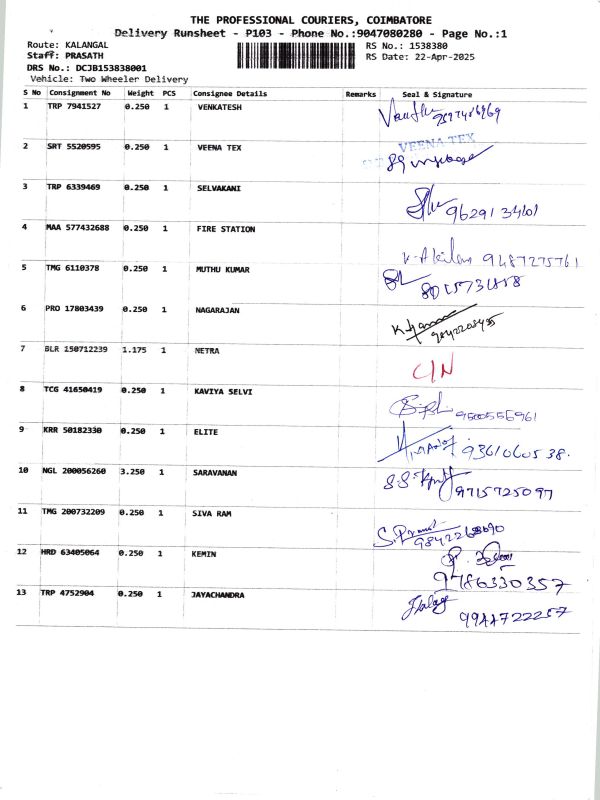 THE PROFESSIONAL COURIERS, COIMBATORE
Delivery Runsheet - P103 - Phone No.:9047080280 - Page No.:1
Route: KALANGAL RS No.: 1538380
Staff: PRASATH RS Date: 22-Apr-2025
DRS No.: DCJB153838001
Vehicle: Two Wheeler Delivery
S No Consignment No Weight PCS Consignee Details Remarks Seal & Signature
1 TRP 7941527 0.250 1 VENKATESH
2 SRT 5520595 0.250 1 VEENA TEX VEENA TEX
3 TRP 6339469 0.250 1 SELVAKANI
4 MAA 577432688 0.250 1 FIRE STATION 9487275761
5 TMG 6110378 0.250 1 MUTHU KUMAR
6 PRO 17803439 0.250 1 NAGARAJAN
7 BLR 150712239 1.175 1 NETRA C/N
8 TCG 41650419 0.250 1 KAVIYA SELVI 9500556961
9 KRR 50182330 0.250 1 ELITE
10 NGL 200056260 3.250 1 SARAVANAN 9715725097
11 TMG 200732209 0.250 1 SIVA RAM
12 HRD 63405064 0.250 1 KEMIN 9786330357
13 TRP 4752904 0.250 1 JAYACHANDRA